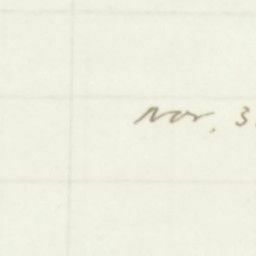 Nov. 3